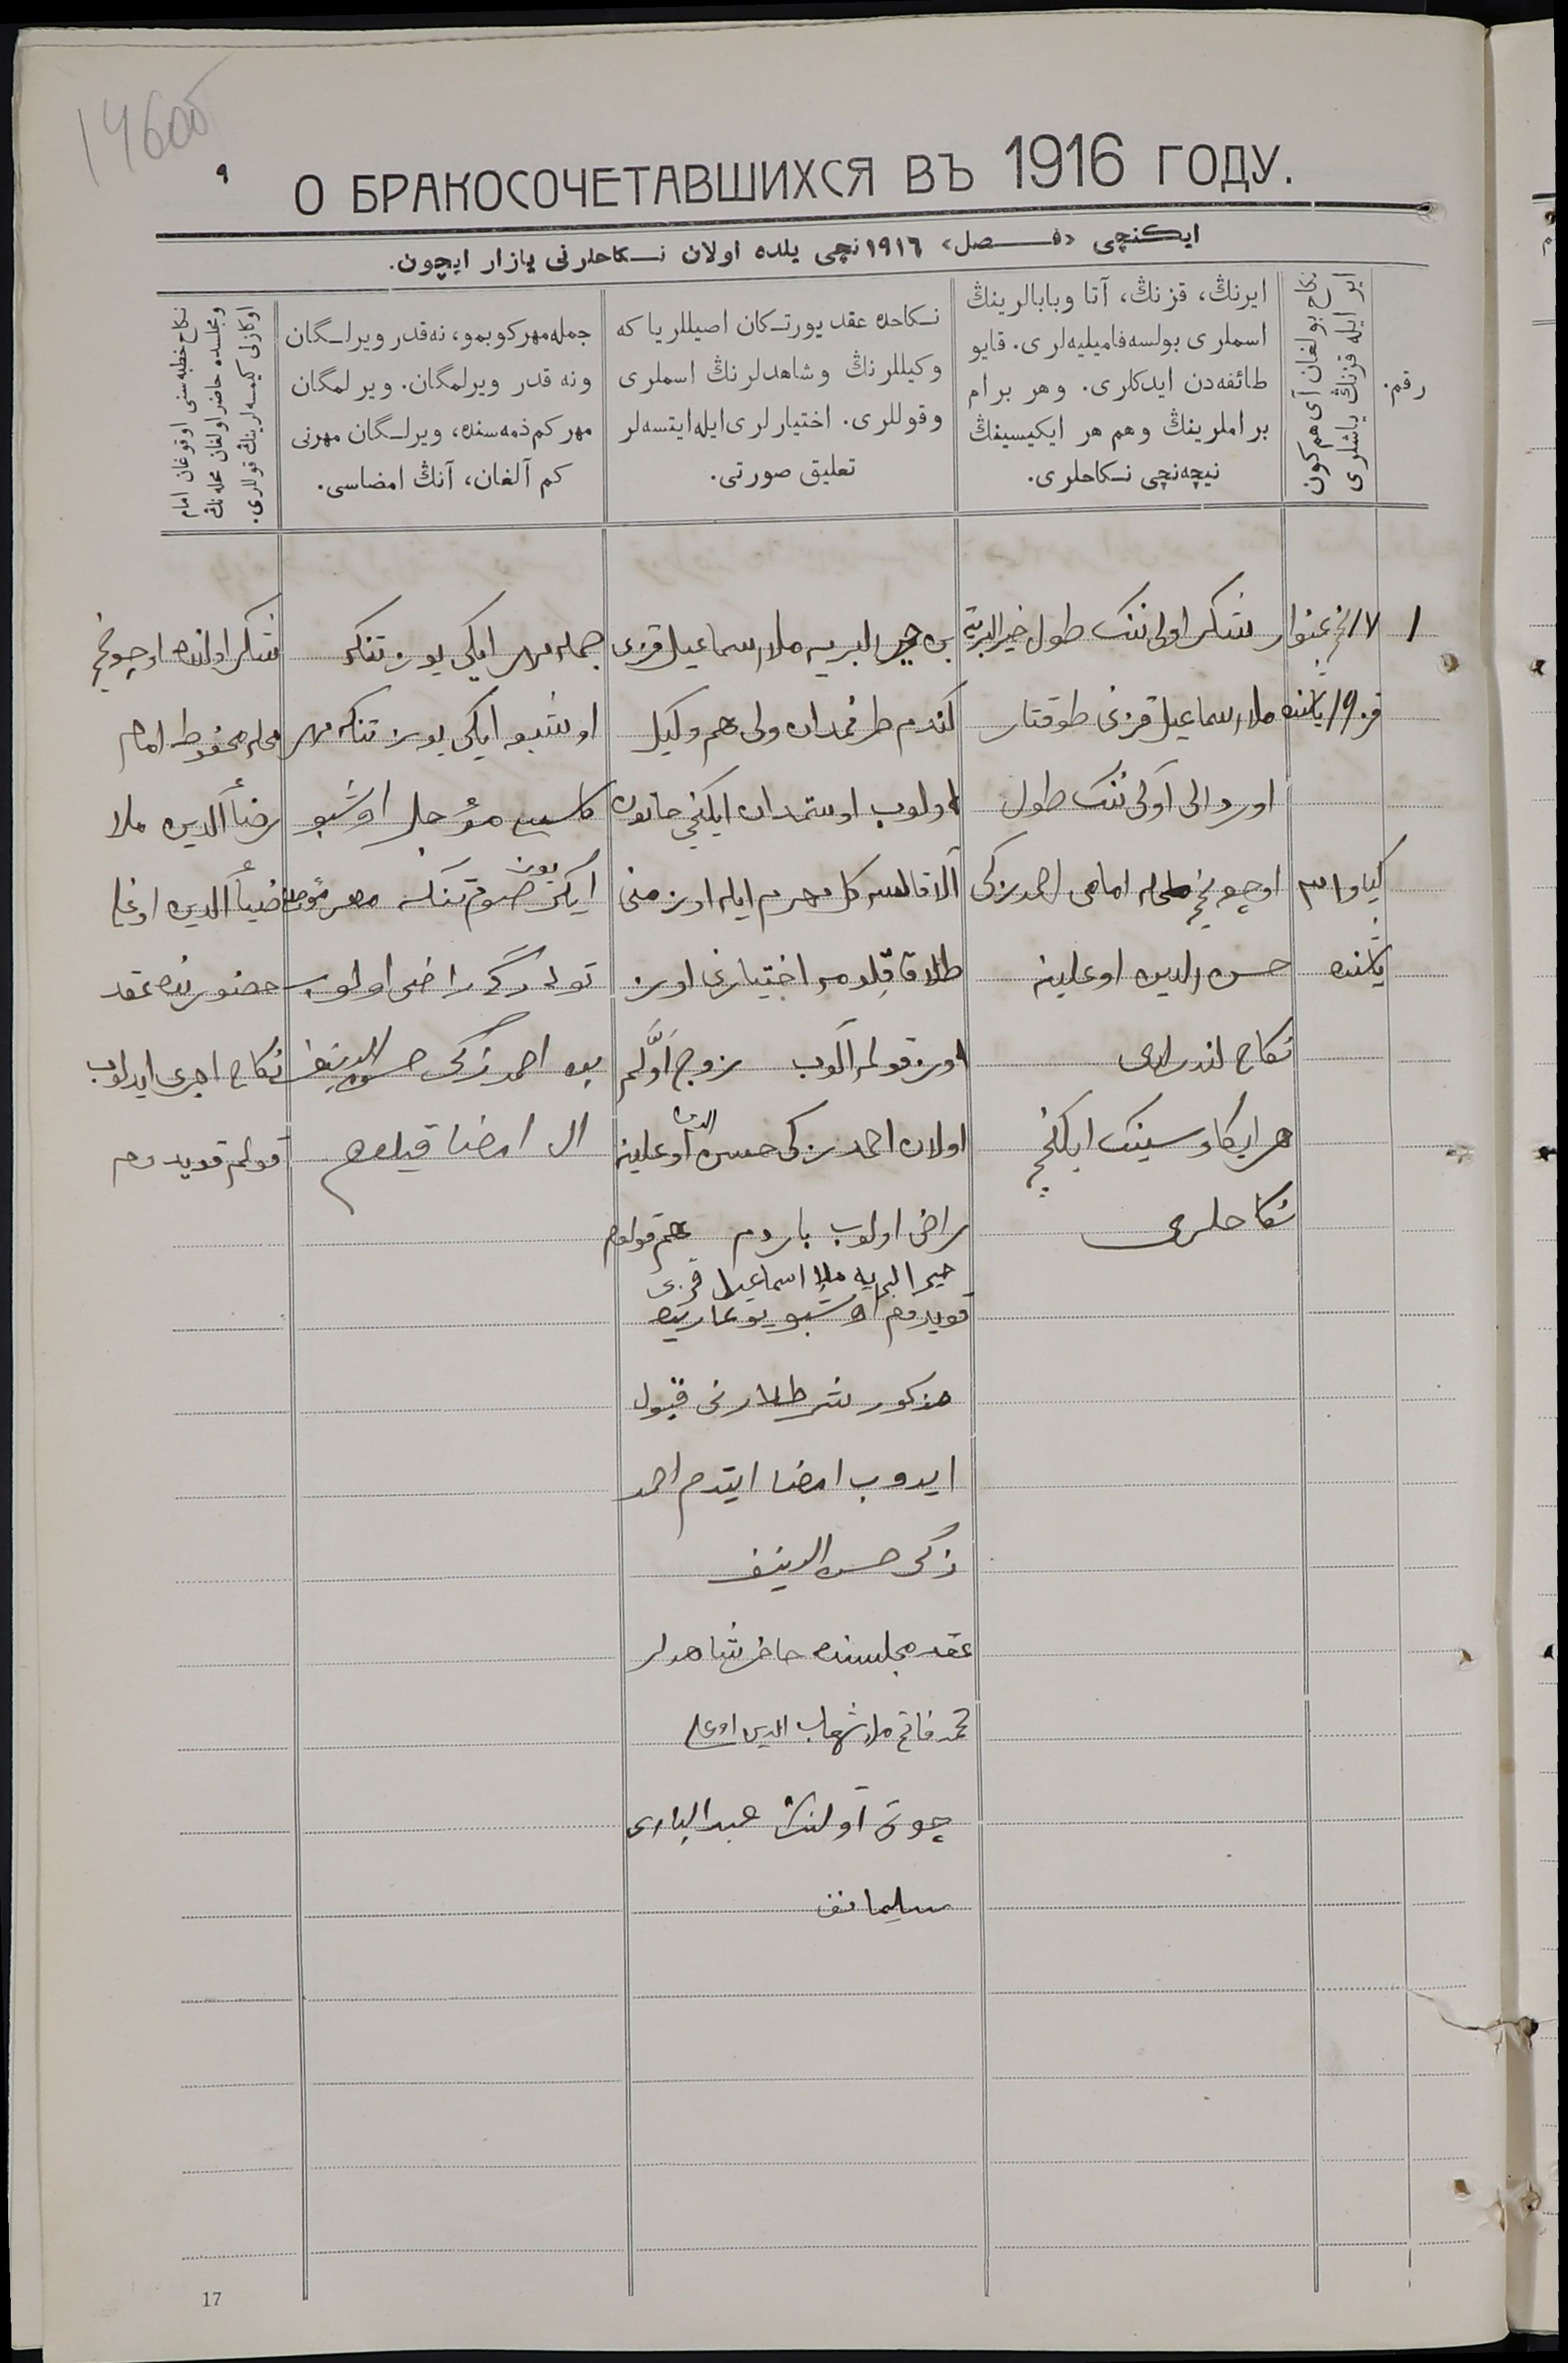 14600
٩
О БРАКОСОЧЕТАВШИХСЯ ВЪ 1916 ГОДУ.
ایكنچی «فـصل» ١٩١٦نچی یلده اولان نـكاحلرنی یازار ایچون.
رقم.
نكاح بولغان آی هم كون
ایر ایله قزنڭ یاشلری
ایرنڭ، قزنڭ، آتا وبابالرینڭ
اسملری بولسه فامیلیه‌لری. قایو
طائفه‌دن ایدكلری. وهر برام
براملرینڭ وهم هر ایكیسینڭ
نیچه‌نچی نـكاحلری.
نـكاحده عقد یورتـكان اصیللر یا كه
وكیللرنڭ وشاهدلرنڭ اسملری
وقوللری. اختیارلری ایله ایتسه‌لر
تعلیق صورتی.
جمله مهر كوبمو، نه‌قدر ویرلـگان
ونه قدر ویرلمگان. ویرلمگان
مهر كم ذمه‌سنده، ویرلـگان مهرنی
كم آلغان، آنڭ امضاسی.
نـكاح خطبه‌سنی اوقوغان امام
ومجلسده حاضر اولغان محله‌نڭ
اوكازلی كیمسه‌لرینڭ قوللری.
١
١٧نچی غنوار
قز ١٩ یاشنده
كیاو ٣١
یاشنده
شكر اولی ننك طول خیر البریه
ملا اسماعیل قزی طوقتار
اورد الی آولی ننك طول
اوچونچی محله امامی احمد زكی
حسن الدین اوغلینه
نكاحلندرلدی
هر ایكاوسینك ایكنچی
نكاحلری
بن خیر البریه ملا اسماعیل قزی
كندم طرفمدان ولی هم وكیل
اولوب اوستمدان ایكنچی خاتون
آلا قالسه كل مهرم ایله اوزمنی
طلاق قلدرمه اختیارنی اوز
اوز قولمه آلوب زوج اولم
اولان احمد زكی حسن الدین اوغلینه
راضی اولوب باردم هم قولوم
خیر البریه ملا اسماعیل قزی
قویدوم اوشبو یوغاریده
مذكور شرطلارنی قبول
ایدوب امضا ایتدم احمد
زكی حسن الدینف
عقد مجلسنده حاضر شاهدلر
محمد فاتح ملا شهاب الدین اوغلی
چوق آولنك عبد الباری
سلیمانف
جمله مهر ایكی یوز تنكه
اوشبو ایكی یوز تنكه مهر
مؤجل اوشبو
ایكی یوز تنكه مهر مؤجلنی
تولارگه راضی اولوب
بن احمد زكی حسن الدینف
امضا قیلدم
شكر اولنده اوچونچی
محله محفوظ امام
رضاء الدین ملا
ضیاء الدین اوغلی
حضورنده عقد
نكاح اجرا ایدلوب
قولم قویدوم
17